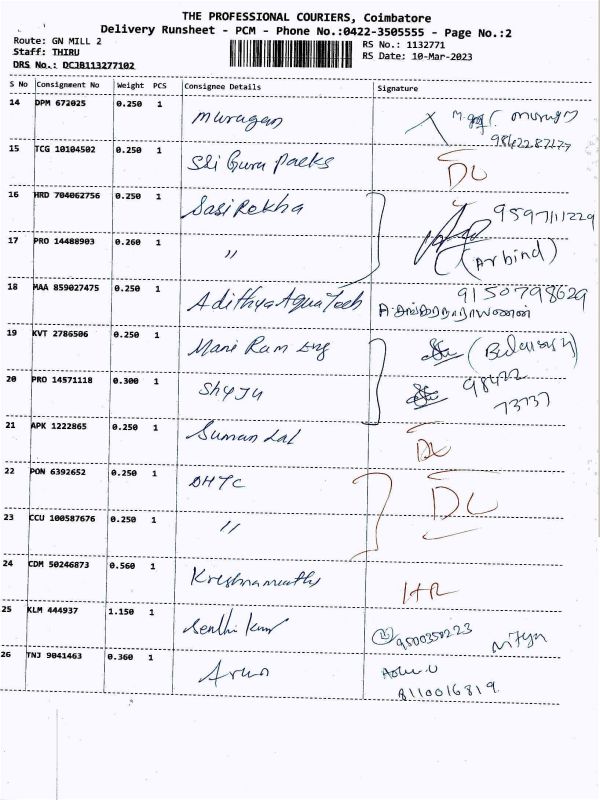 THE PROFESSIONAL COURIERS, Coimbatore
Delivery Runsheet - PCM - Phone No.:0422-3505555 - Page No.:2
Route: GN MILL 2
RS No.: 1132771
Staff: THIRU
RS Date: 10-Mar-2023
DRS No.: DCJB113277102
S No Consignment No Weight PCS Consignee Details Signature
14 DPM 672025 0.250 1 Murugan
9842287277
15 TCG 10104502 0.250 1 Sri Guru Packs DL
16 HRD 704062756 0.250 1 Sasi Rekha 9597111229
17 PRO 14488903 0.260 1 " (Arbind)
18 MAA 859027475 0.250 1 Adithya Aqua Tech 9150798629
19 KVT 2786506 0.250 1 Mani Ram Eng
20 PRO 14571118 0.300 1 Shyju 98422
73737
21 APK 1222865 0.250 1 Suman Lal DL
22 PON 6392652 0.250 1 DHTC DL
23 CCU 100587676 0.250 1 "
24 CDM 50246873 0.560 1 Krishnamurthy
25 KLM 444937 1.150 1 Senthil kumar 9500350223 Nitya
26 TNJ 9041463 0.360 1 Arun
8110016819